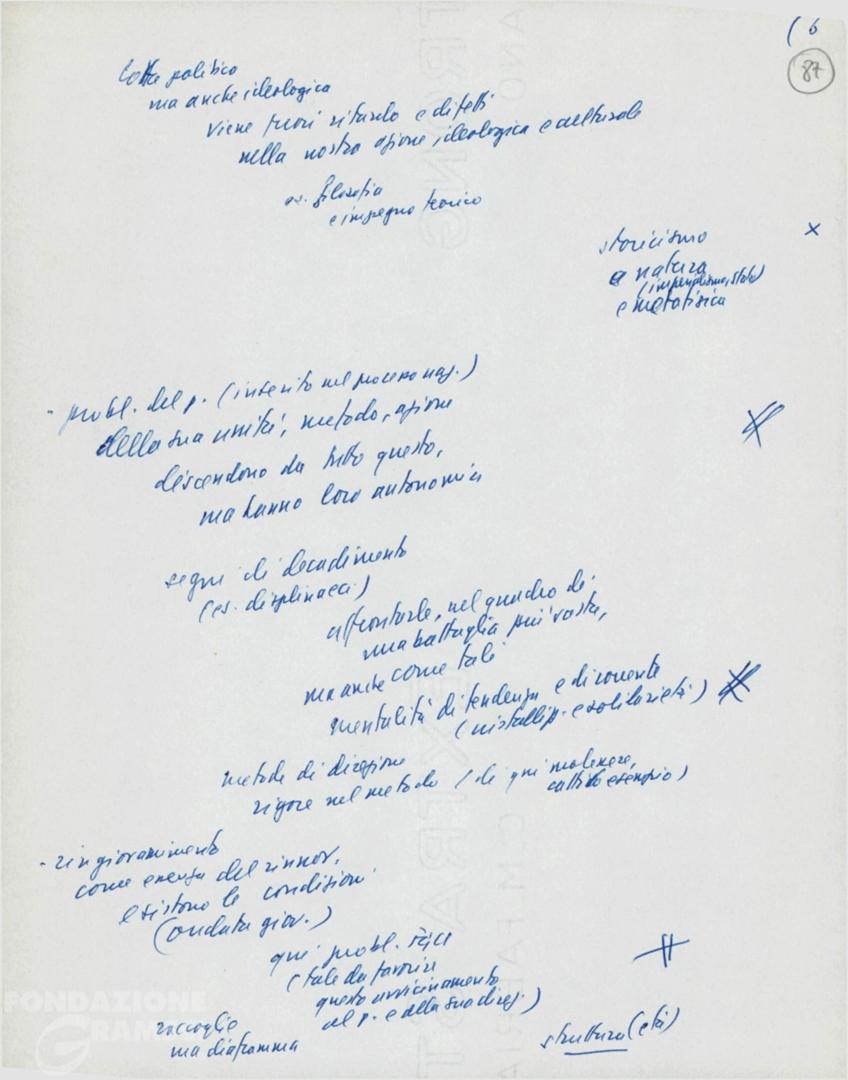 ( 6
87
lotta politica
ma anche ideologica
viene fuori ritardo e difetti
nella nostra azione ideologica e culturale
es. filosofia
e impegno teorico
storicismo
x
e natura
(imperialismo, stato)
e metafisica
- probl. del p. (inserito nel processo naz.)
della sua unità, metodo, azione
discendono da tutto questo,
ma hanno loro autonomia
segni di decadimento
(es. displinacci)
affrontarle, nel quadro di
una battaglia più vasta,
ma anche come tali
mentalità di tendenza e di corrente
e solidarietà)
metodo di direzione
rigore nel metodo (di qui malessere,
cattivo esempio)
- ringiovanimento
come essenza del rinnov.
esistono le condizioni
(ondata giov.)
qui probl.
(tale da favorire
questo avvicinamento
al p. e alla sua direz.)
raccoglie
ma diaframma
struttura (età)
FONDAZIONE
GRAMSCI